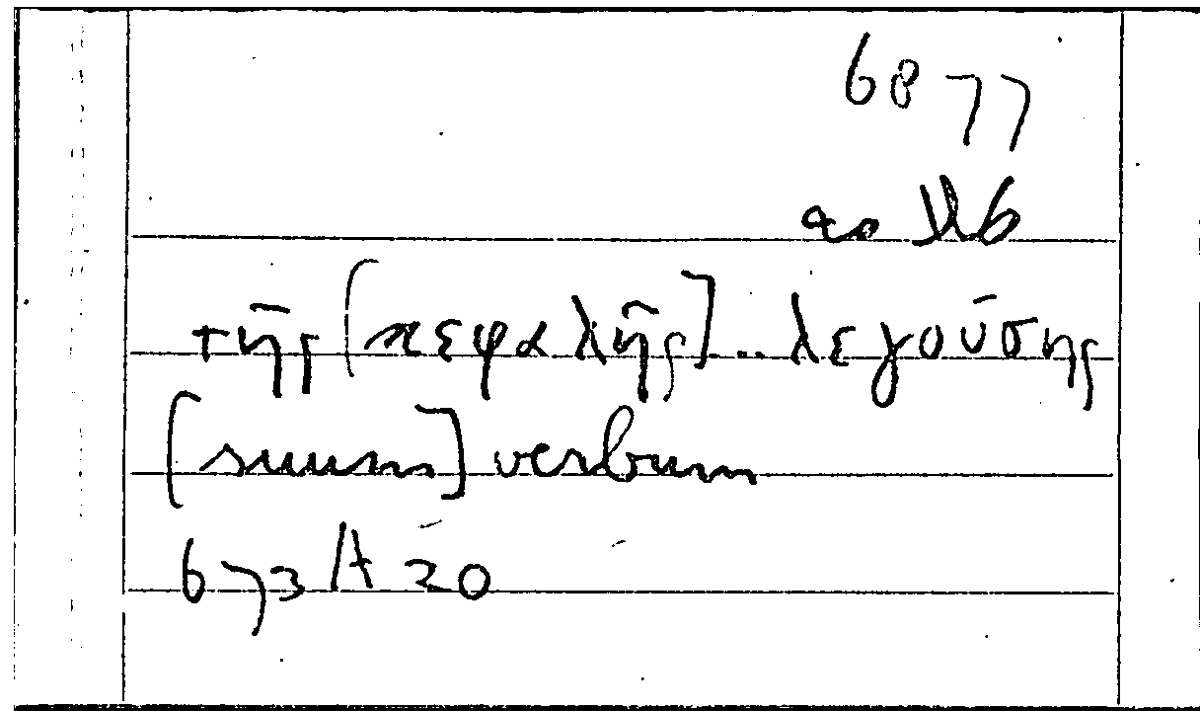 6877
τῆς [κεφαλῆς] .. λεγούσης
[suum] verbum
673 A 20